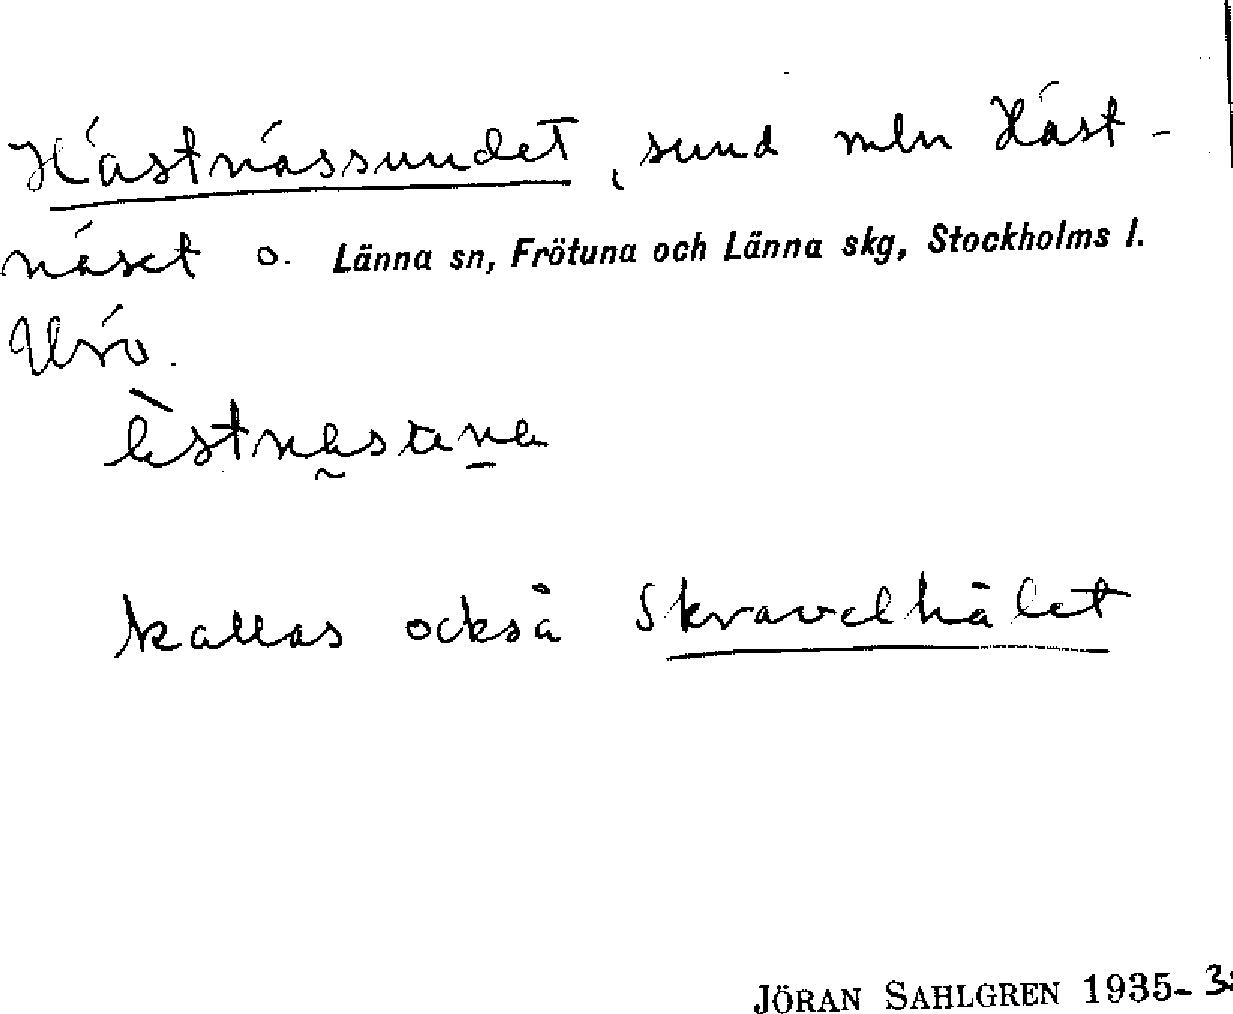 Hästnässundet, sund mln Häst-
näset o. Länna sn, Frötuna och Länna skg, Stockholms l.
kallas också Skravelhålet
JÖRAN SAHLGREN 1935-